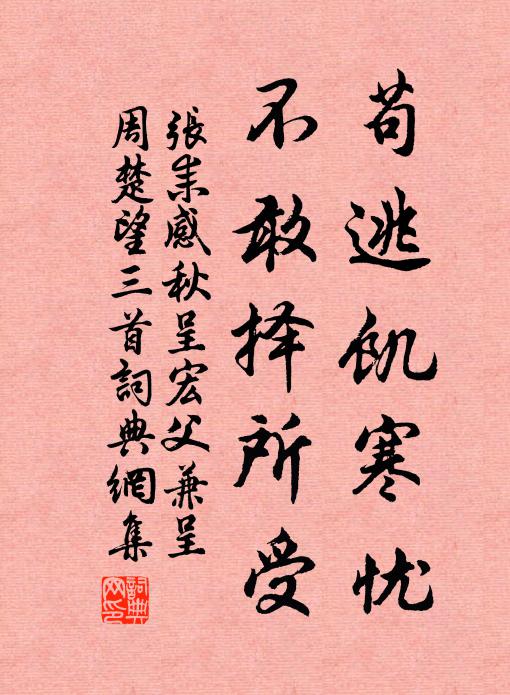 苟逃饥寒忧
不敢择所受
張耒感秋呈宏父兼呈
周楚望三首詞典網集
詞典网印